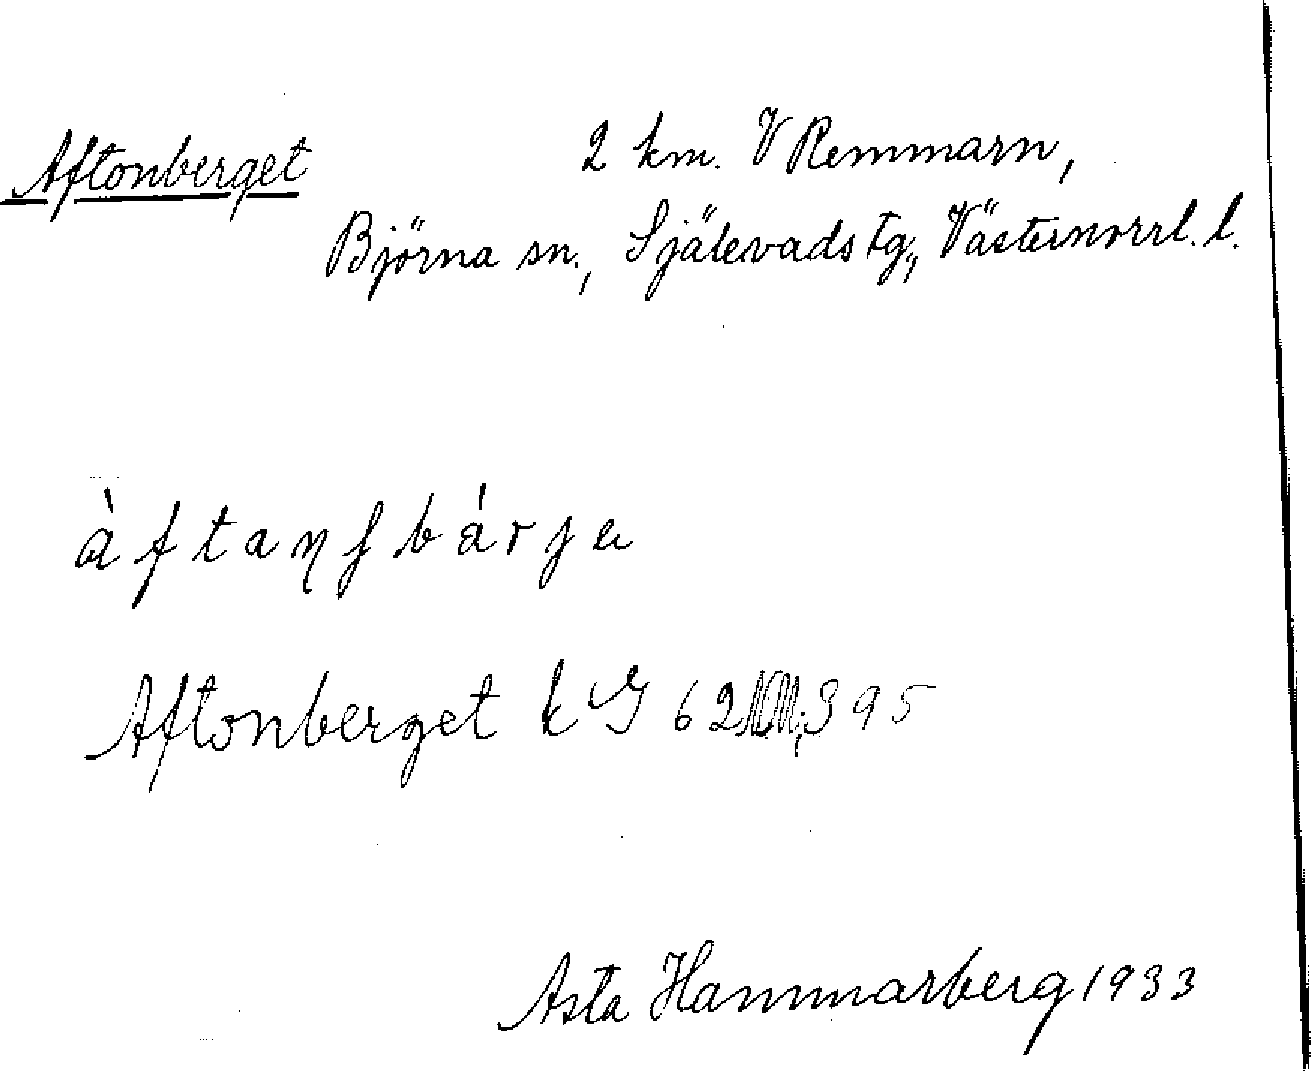 Aftonberget 2 km. V Remmarn,
Björna sn., Själevads tg., Västernorrl. l.
àftaŋʃbárje
Aftonberget k G 62 ; 395
Asta Hammarberg 1933